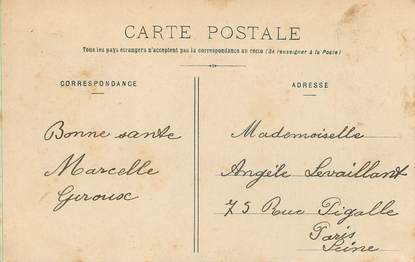 CARTE POSTALE
Tous les pays étrangers n'acceptent pas la correspondance au recto (Se renseigner à la Poste)
CORRESPONDANCE
Bonne santé
Marcelle
Giroux
ADRESSE
Mademoiselle
Angèle Levaillant
75 Rue Pigalle
Paris
Seine